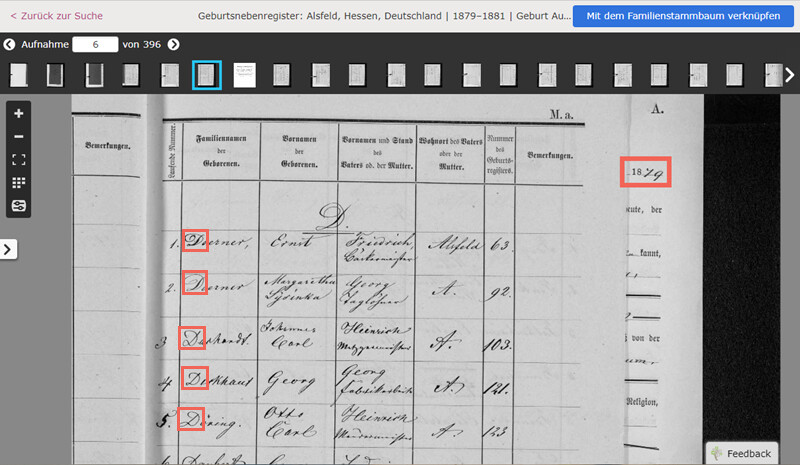 < Zurück zur Suche
Geburtsnebenregister: Alsfeld, Hessen, Deutschland | 1879–1881 | Geburt Au...
Mit dem Familienstammbaum verknüpfen
Aufnahme 6 von 396
M. a.
A.
Bemerkungen.
Laufende Nummer.
Familiennamen der Geborenen.
Vornamen der Geborenen.
Vornamen und Stand des Vaters od. der Mutter.
Wohnort des Vaters oder der Mutter.
Nummer des Geburtsregisters.
Bemerkungen.
1879
D.
1. Doerner, Ernst Friedrich, Bäckermeister Alsfeld 63.
2. Doerner Margaretha Georg Taglöhner A. 92.
3 Johannes Carl Heinrich Metzgermeister A. 103.
4 Georg Georg Fabrikarbeiter A. 121.
5. Döring. Otto Carl Heinrich A 123
der
kannt,
von der
Religion,
Feedback